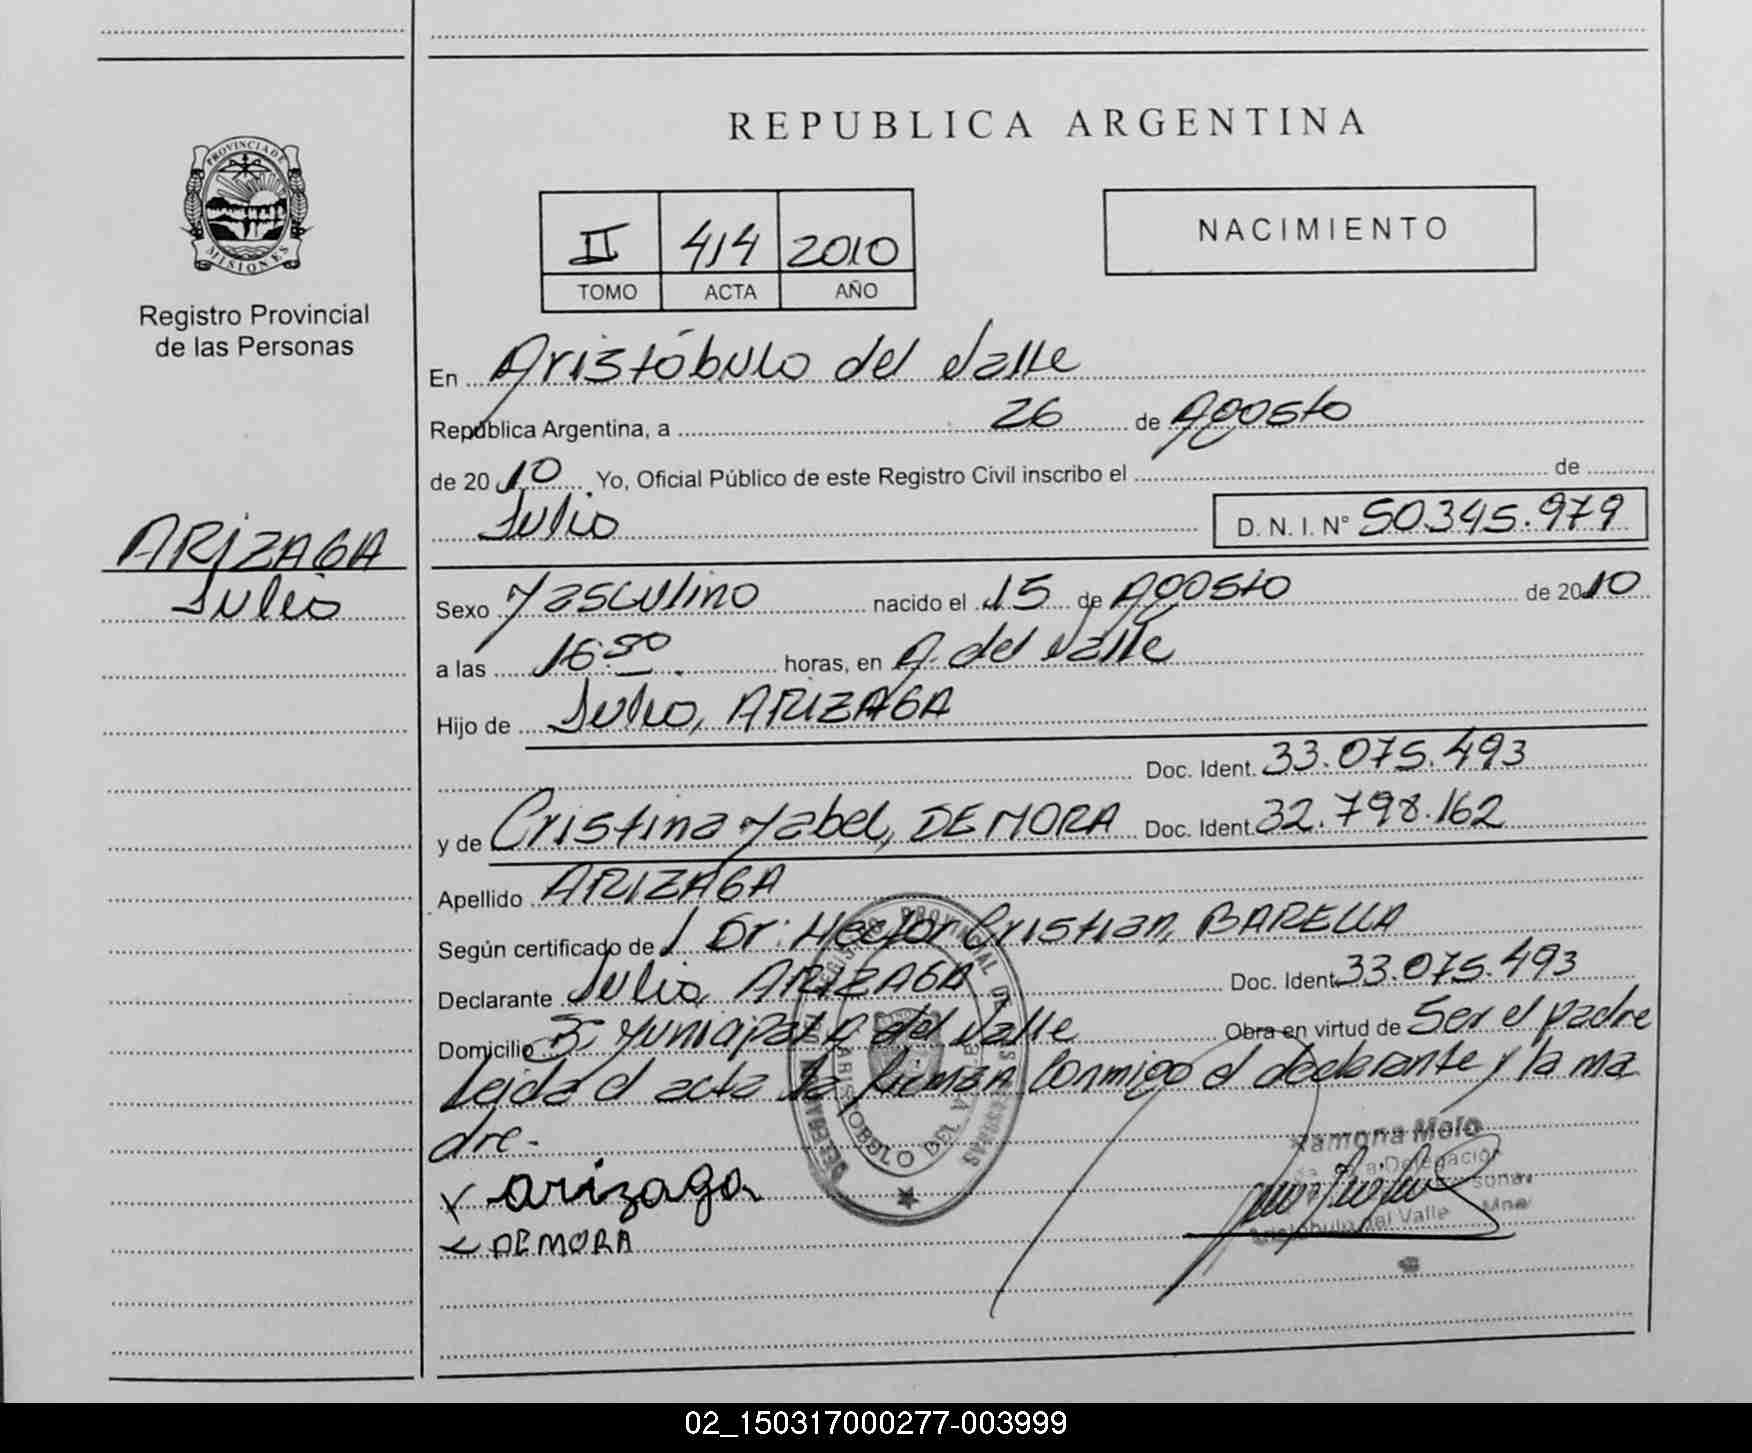 REPUBLICA ARGENTINA
PROVINCIA DE
MISIONES
Registro Provincial
de las Personas
II 414 2010
TOMO ACTA AÑO
NACIMIENTO
En Aristóbulo del Valle
República Argentina, a 26 de Agosto
de 2010 Yo, Oficial Público de este Registro Civil inscribo el de
Julio D. N. I. N° 50.345.979
ARIZAGA
Julio
Sexo Masculino nacido el 15 de Agosto de 2010
a las 16:30 horas, en A. del Valle
Hijo de Julio, ARIZAGA
Doc. Ident. 33.075.493
y de Cristina Mabel, DE MORA Doc. Ident. 32.798.162
Apellido ARIZAGA
Según certificado de Dr. Hector Cristian, BARELLA
Declarante Julio, ARIZAGA Doc. Ident. 33.075.493
Domicilio Municipal A. del Valle Obra en virtud de Ser el padre
Leida el acta la firman conmigo el declarante y la ma
dre.-
x arizaga
x DE MORA
REGISTRO PROVINCIAL DE LAS PERSONAS
ARISTOBULO DEL VALLE
Ramona Melo
Delegación
Aristóbulo del Valle Mnes
02_150317000277-003999